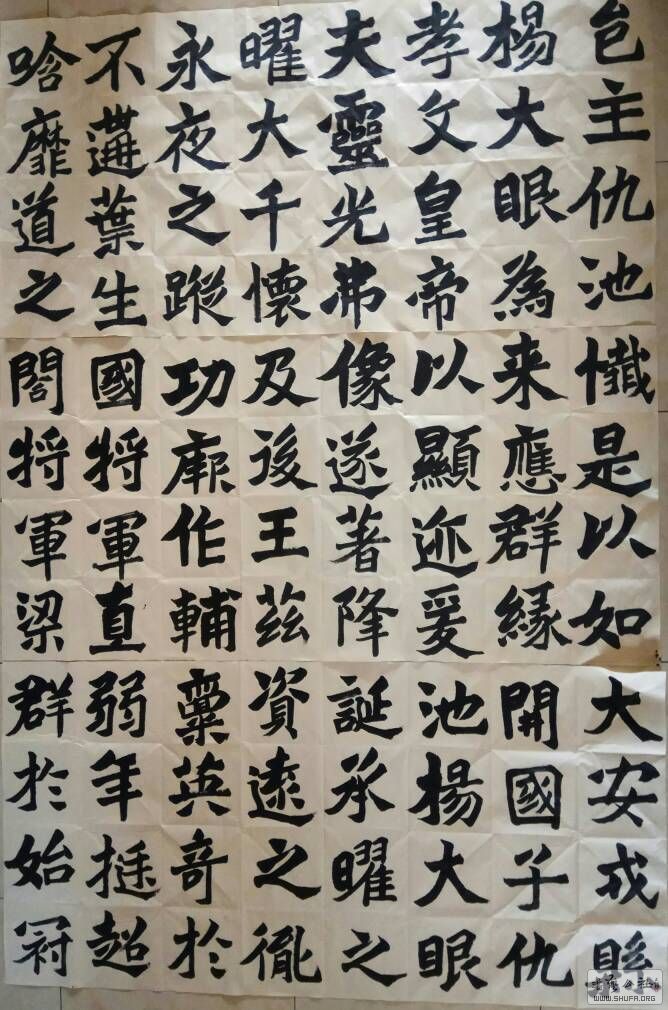 邑主仇池
楊大眼為
孝文皇帝
夫靈光弗
曜大千懷
永夜之蹤
不遘葉生
唅靡道之
懺是以如
来應群緣
以顯迹爰
像遂著降
及後王茲
功厥作輔
國將軍直
閤將軍梁
大安戎縣
開國子仇
池楊大眼
誕承曜之
資遠之胤
稟英奇於
弱年挺超
群於始冠
WWW.SHUFA.ORG